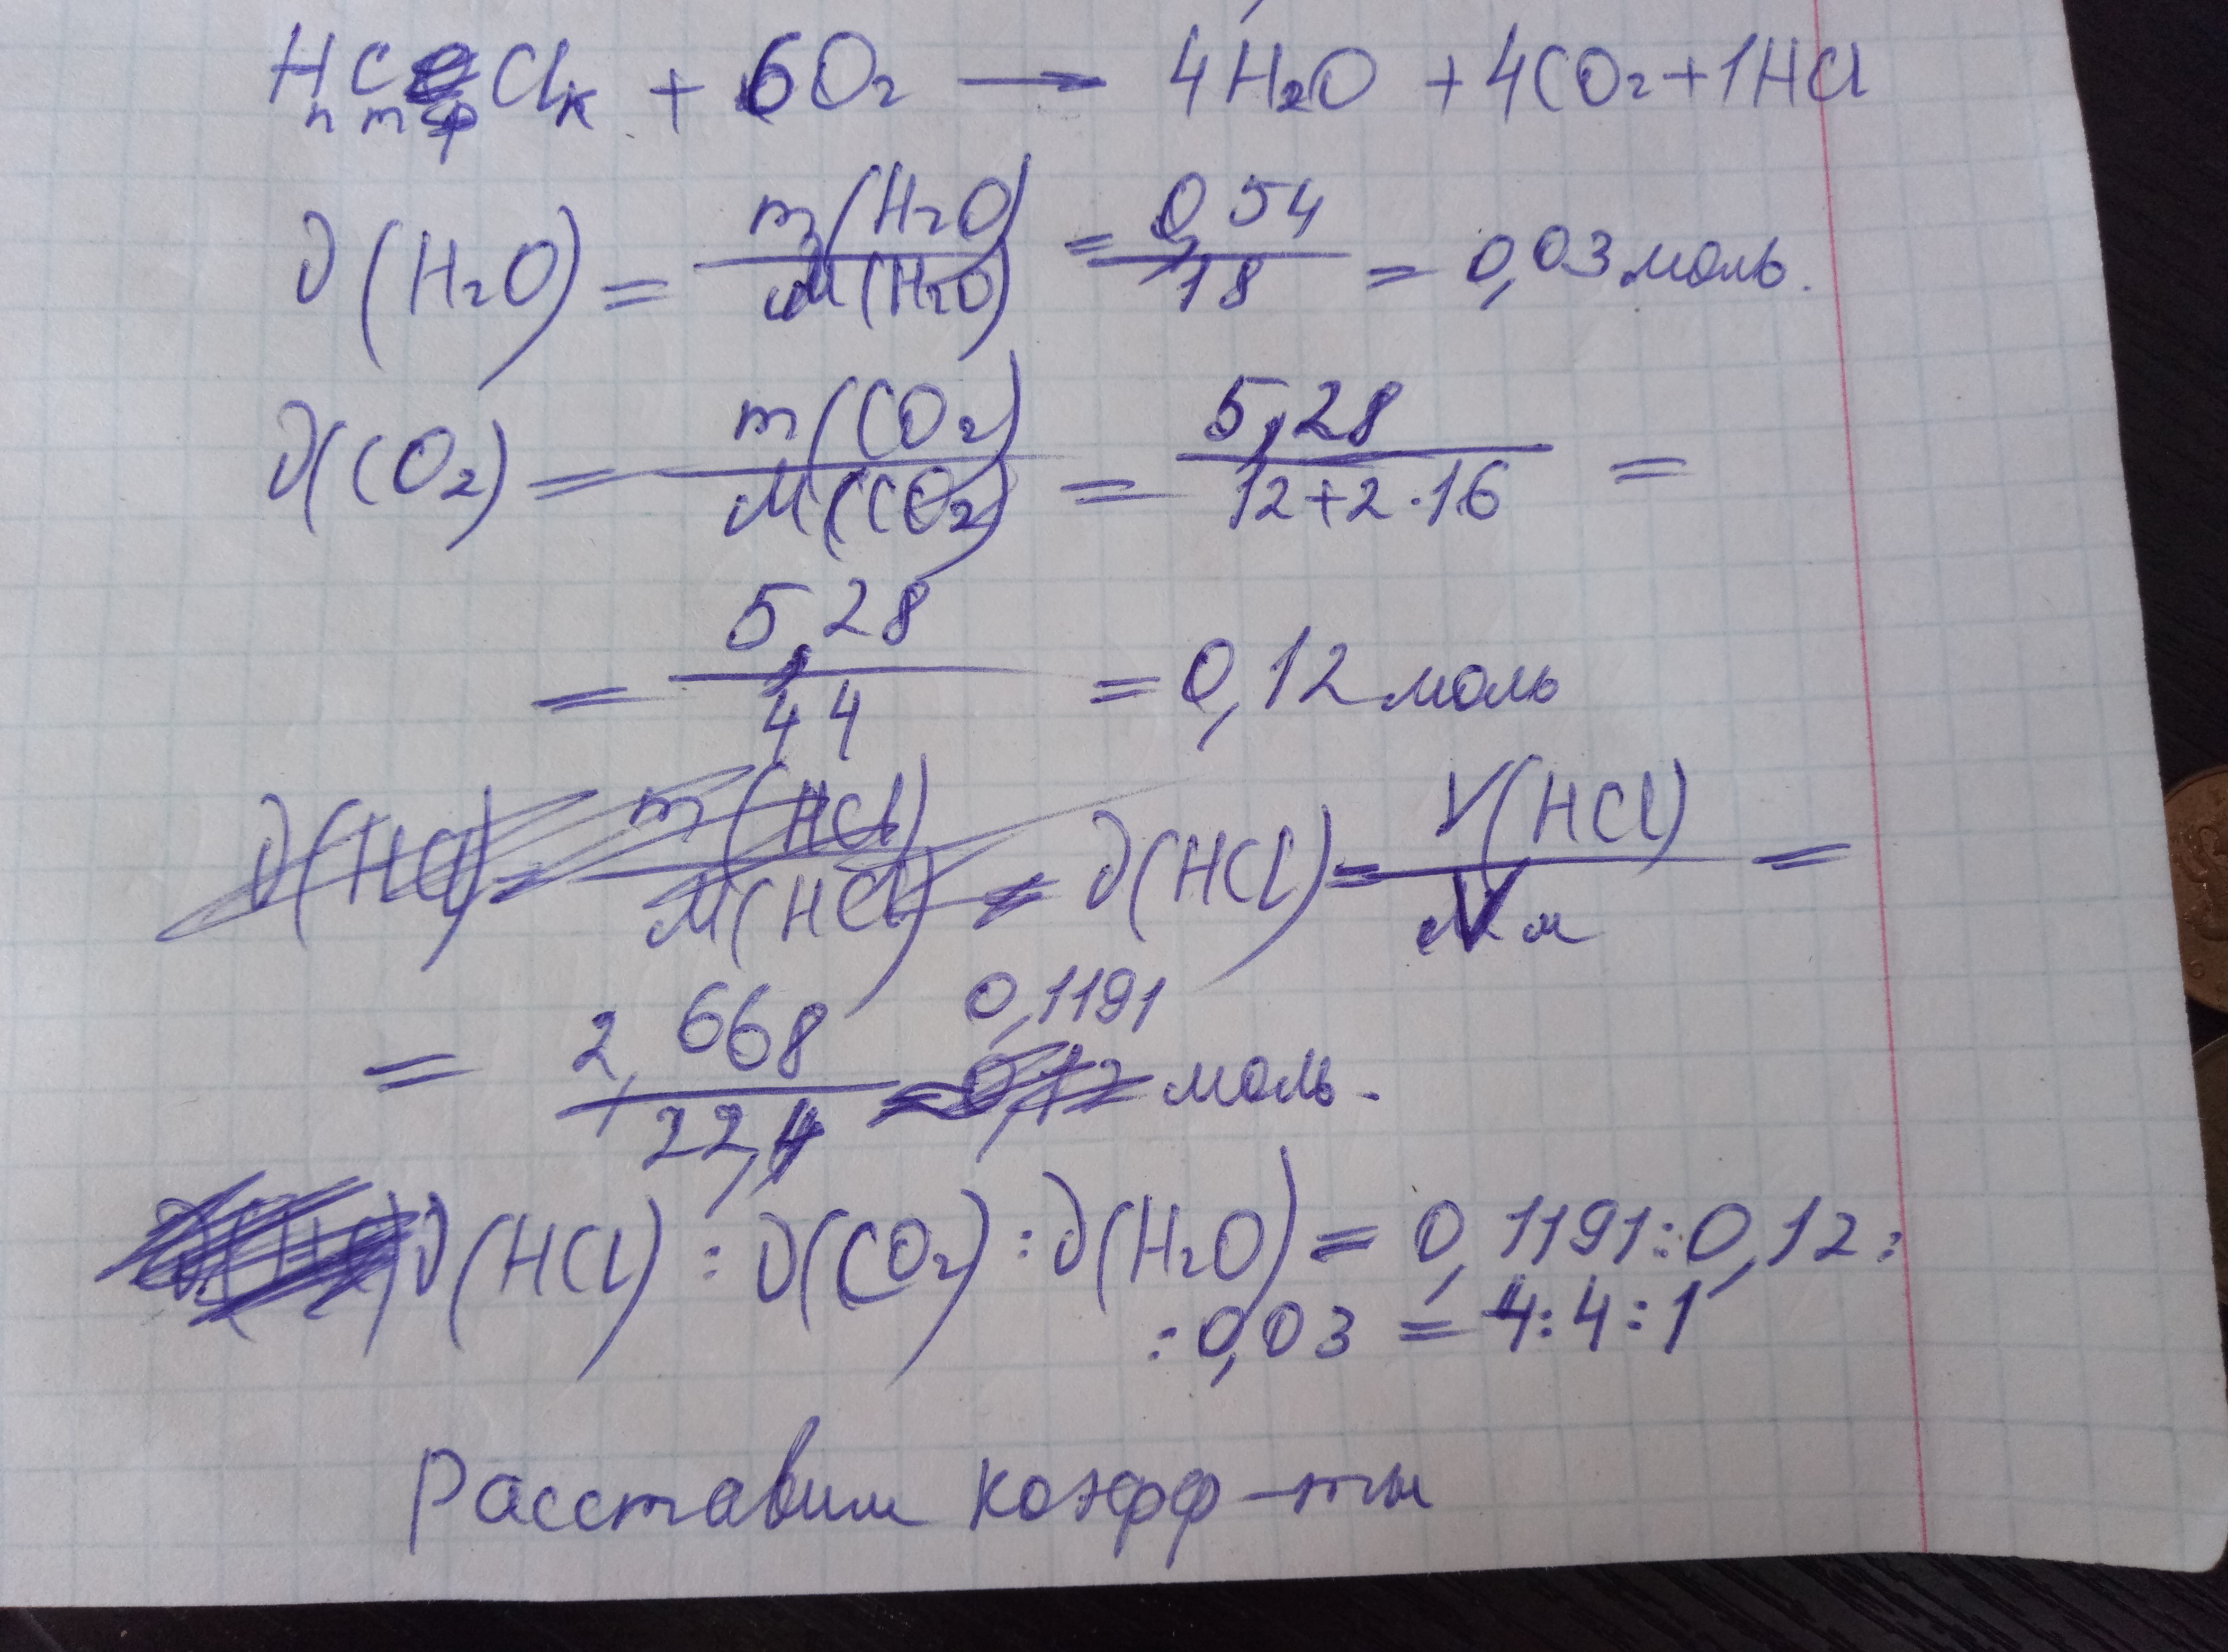 HₙCₘClₖ + 6O₂ → 4H₂O + 4CO₂ + 1HCl
∂(H₂O) = m(H₂O)/M(H₂O) = 0,54/18 = 0,03 моль.
∂(CO₂) = m(CO₂)/M(CO₂) = 5,28/12+2·16 =
= 5,28/44 = 0,12 моль
∂(HCl) = m(HCl)/M(HCl) = ∂(HCl) = V(HCl)/Vм =
= 2,668/22,4 = 0,1191 моль.
∂(HCl) : ∂(CO₂) : ∂(H₂O) = 0,1191 : 0,12 :
: 0,03 = 4 : 4 : 1
Расставим коэфф-ты